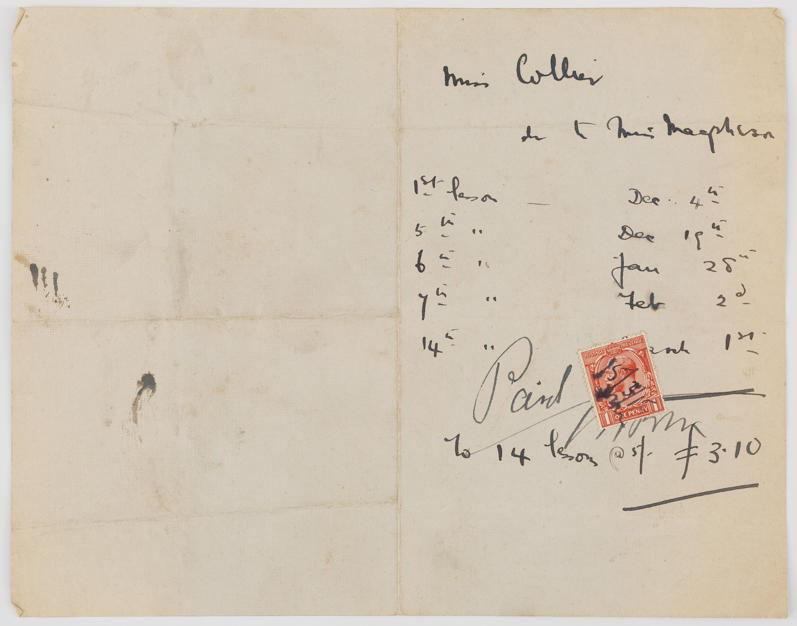 Miss Collier
dr to Miss Macpherson
1st lesson — Dec. 4th
5th " Dec 19th
6th " Jan 28th
7th " Feb 2d
14th " March 1st
Paid
ONE PENNY
To 14 lessons @ 5/- £3.10